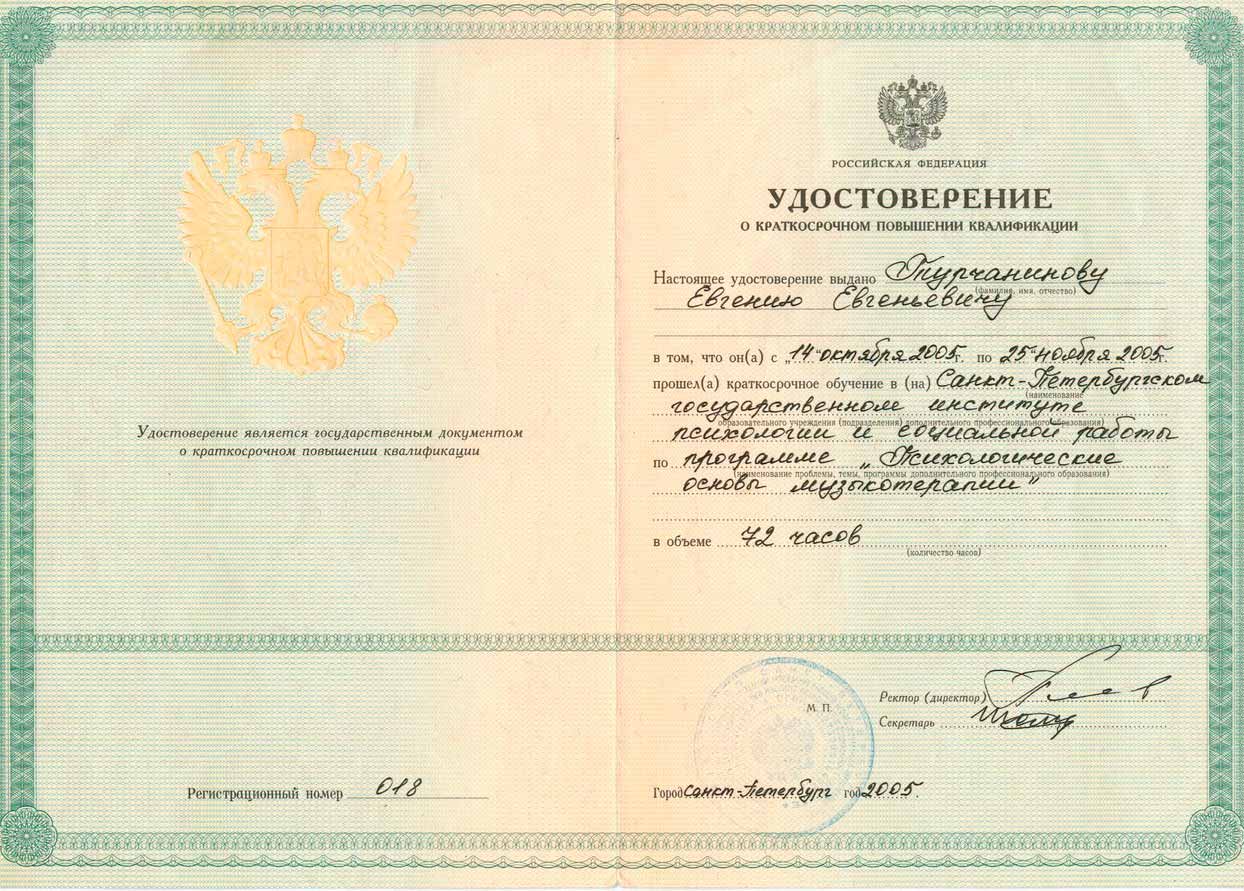 Удостоверение является государственным документом
о краткосрочном повышении квалификации
Регистрационный номер 018
РОССИЙСКАЯ ФЕДЕРАЦИЯ
УДОСТОВЕРЕНИЕ
О КРАТКОСРОЧНОМ ПОВЫШЕНИИ КВАЛИФИКАЦИИ
Настоящее удостоверение выдано Турчанинову
(фамилия, имя, отчество)
Евгению Евгеньевичу
в том, что он(а) с „14“ октября 2005г. по 25“ ноября 2005г.
прошел(а) краткосрочное обучение в (на) Санкт-Петербургском
(наименование
государственном институте
образовательного учреждения (подразделения) дополнительного профессионального образования)
психологии и социальной работы
по программе „Психологические
(наименование проблемы, темы, программы дополнительного профессионального образования)
основы музыкотерапии"
в объеме 72 часов
(количество часов)
М. П.
Ректор (директор)
Секретарь
Город Санкт-Петербург год 2005.